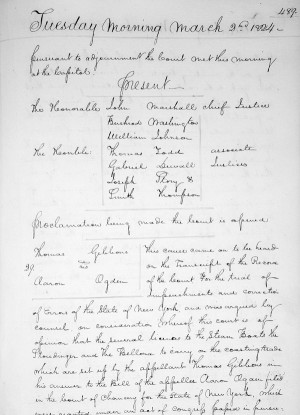 489.
Tuesday Morning March 2nd 1824.
Pursuant to adjournment the Court met this morning
at the Capitol.
Present
The Honorable John Marshall Chief Justice
Bushrod Washington
William Johnson
The Honble: Thomas Todd associate
Gabriel Duvall Justices
Joseph Story &
Smith Thompson
Proclamation being made the Court is opened
Thomas Gibbons This cause came on to be heard
on the Transcript of the Record
of the Court for the trial of
Aaron Ogden Impeachments and correction
of Errors of the State of New York and was argued by
counsel, on consideration whereof this court is of
opinion that the several licenses to the Steam Boats the
Stoudinger and the Bellona to carry on the coasting trade
which are set up by the appellant Thomas Gibbons in
his answer to the Bill of the appellee Aaron Ogden filed
in the Court of Chancery for the State of New York, which
were granted under an act of Congress passed in pursu-